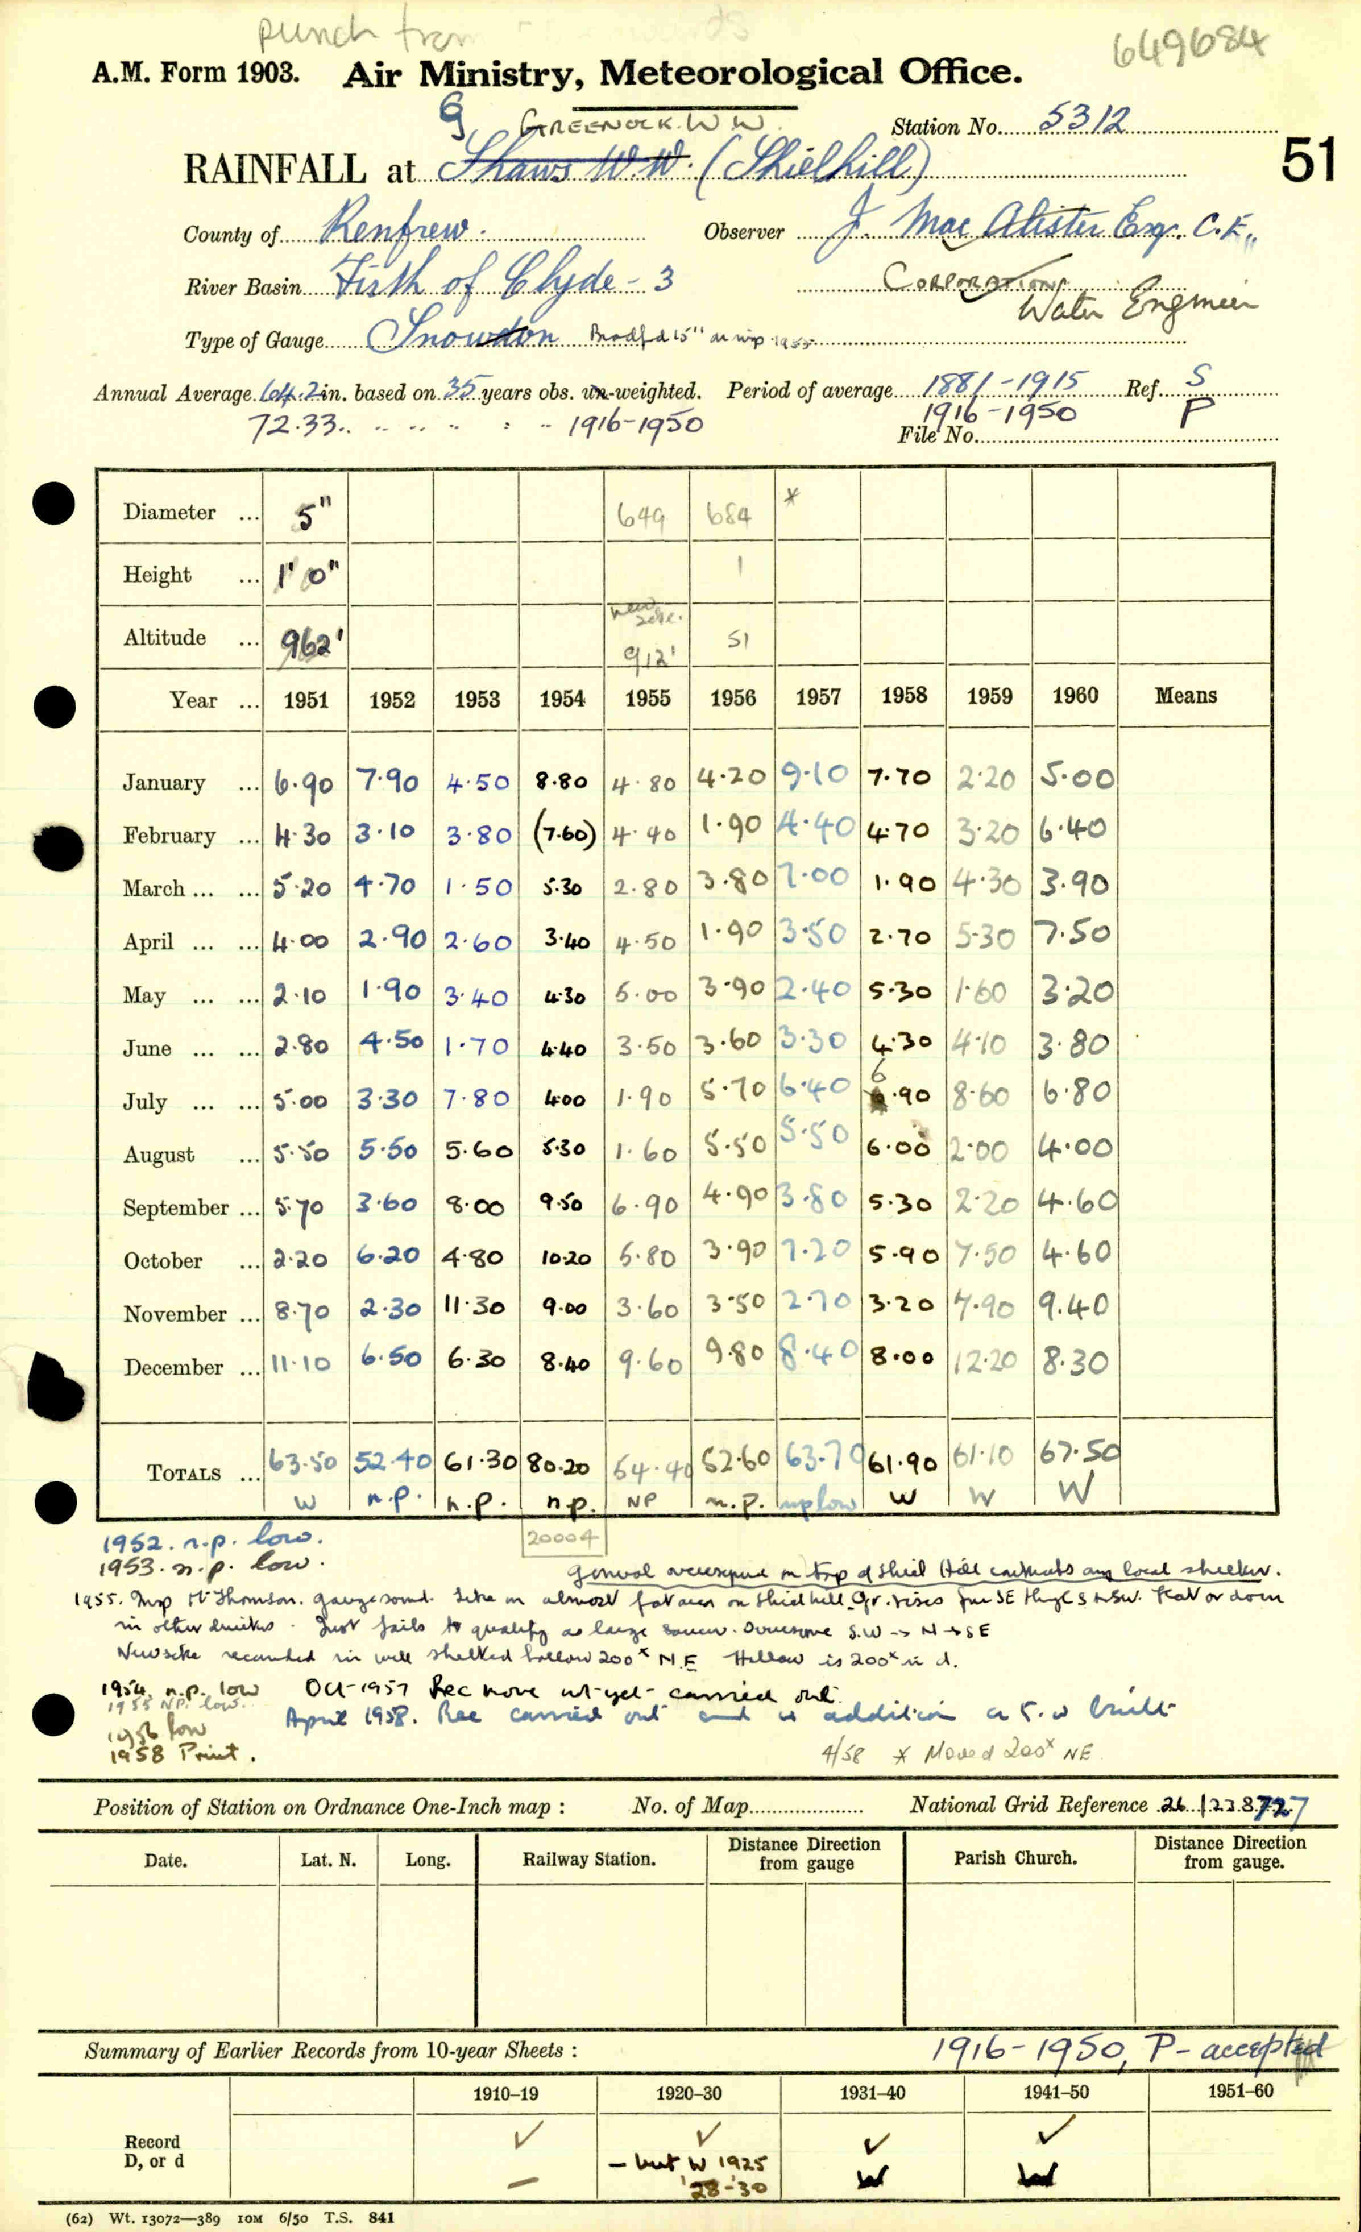 punch from
649684
A.M. Form 1903. Air Ministry, Meteorological Office.
G GREENOCK W W. Station No. 5312
RAINFALL at Shaws W.W. (Shielhill) 51
County of Renfrew. Observer J. MacAlister Esq. C.E.,
River Basin Firth of Clyde - 3 CORPORATION
Water Engineer
Type of Gauge Snowdon Bradfd 15" on insp 1955
Annual Average 64.2 in. based on 35 years obs. un-weighted. Period of average 1881-1915 Ref. S
72.33 .. .. .. .. : .. 1916-1950 1916-1950 P
File No.
Diameter ... 5" 649 684 *
Height ... 1' 0" 1
Altitude ... 962' new site. 912' 51
Year ... 1951 1952 1953 1954 1955 1956 1957 1958 1959 1960 Means
January ... 6.90 7.90 4.50 8.80 4.80 4.20 9.10 7.70 2.20 5.00
February ... 4.30 3.10 3.80 (7.60) 4.40 1.90 4.40 4.70 3.20 6.40
March ... ... 5.20 4.70 1.50 5.30 2.80 3.80 7.00 1.90 4.30 3.90
April ... ... 4.00 2.90 2.60 3.40 4.50 1.90 3.50 2.70 5.30 7.50
May ... ... 2.10 1.90 3.40 4.30 5.00 3.90 2.40 5.30 1.60 3.20
June ... ... 2.80 4.50 1.70 4.40 3.50 3.60 3.30 4.30 4.10 3.80
July ... ... 5.00 3.30 7.80 4.00 1.90 5.70 6.40 6.90 8.60 6.80
August ... 5.50 5.50 5.60 5.30 1.60 5.50 5.50 6.00 2.00 4.00
September ... 5.70 3.60 8.00 9.50 6.90 4.90 3.80 5.30 2.20 4.60
October ... 2.20 6.20 4.80 10.20 5.80 3.90 7.20 5.90 7.50 4.60
November ... 8.70 2.30 11.30 9.00 3.60 3.50 2.70 3.20 7.90 9.40
December ... 11.10 6.50 6.30 8.40 9.60 9.80 8.40 8.00 12.20 8.30
TOTALS ... 63.50 52.40 61.30 80.20 54.40 52.60 63.70 61.90 61.10 67.50
W n.p. n.p. n.p. NP n.p. np low W W W
1952. n.p. low. 20004
1953. n.p. low.
General overexposure on top of Shiel Hill counteracts any local shelter.
1955. Insp Mr Thomson. gauge sound. Site on almost flat area on Shielhill. Gr. rises from SE thro S to SW. Flat or down
in other directions. Just fails to qualify as large S.W -> N -> SE
New site recommended in well sheltered hollow 200x N.E Hollow is 200x in d.
1954. n.p. low Oct 1957 Rec move not yet carried out.
1955 N.P. low. April 1958. Rec carried out and in addition a T.W built
1956 low
1958 Print. 4/58 * Moved 200x NE
Position of Station on Ordnance One-Inch map : No. of Map National Grid Reference 26/238727
Date. Lat. N. Long. Railway Station. Distance from gauge Direction Parish Church. Distance from gauge. Direction
Summary of Earlier Records from 10-year Sheets : 1916-1950, P - accepted
1910–19 1920–30 1931–40 1941–50 1951–60
Record ✓ ✓ ✓ ✓
D, or d – – but W 1925 W W
'28-'30
(62) Wt. 13072—389 10M 6/50 T.S. 841